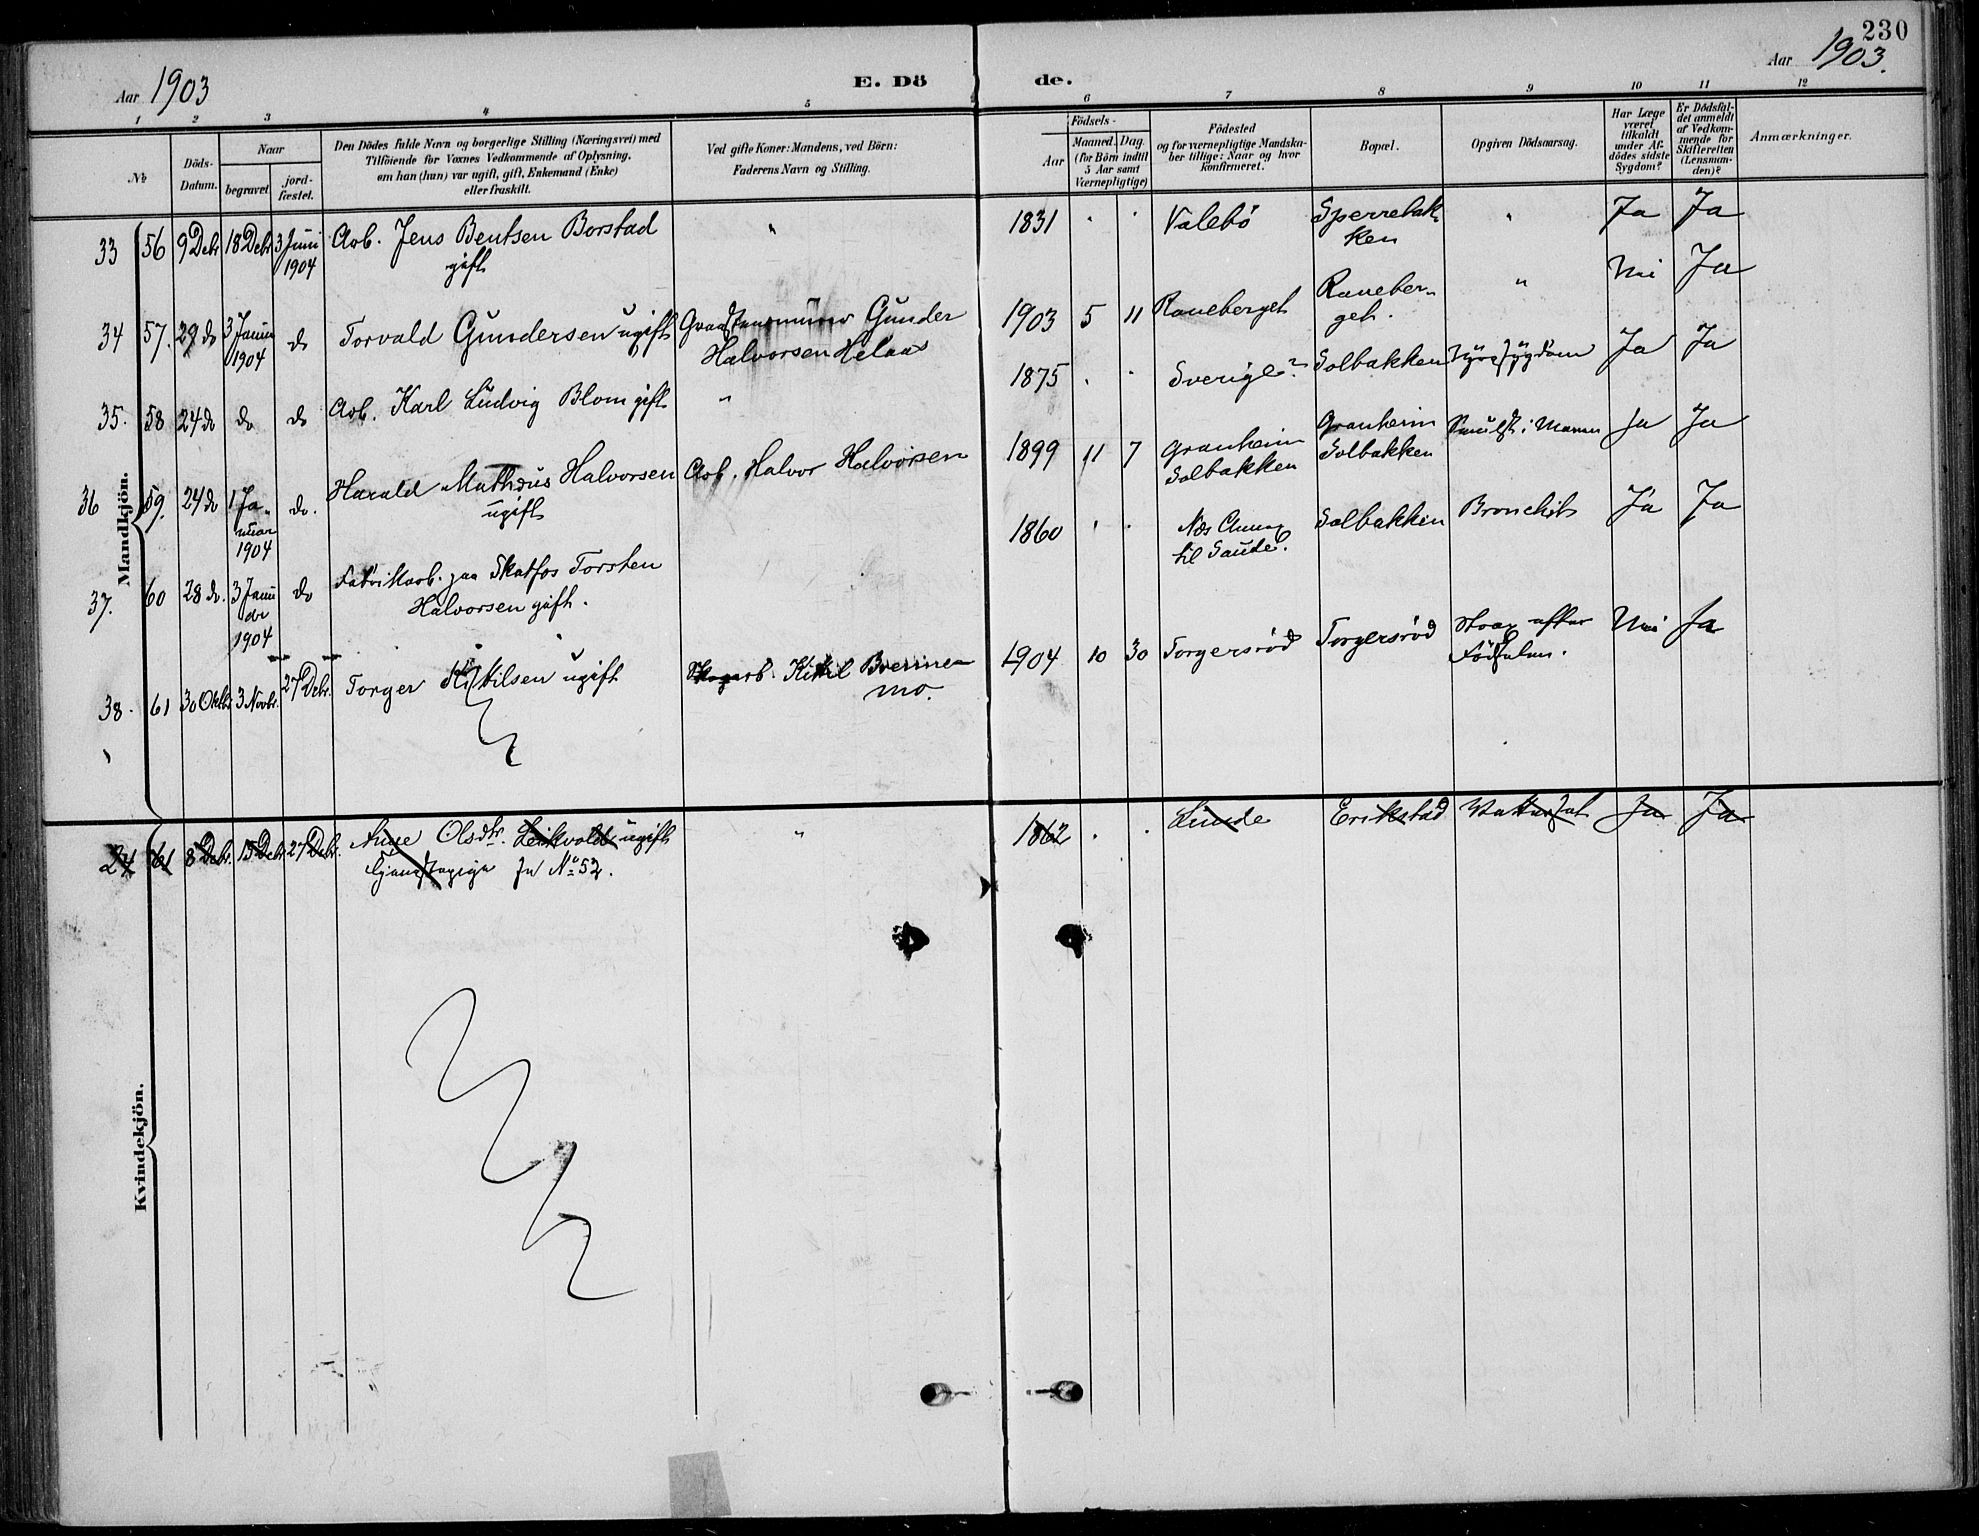 230
Aar 1903
E. Dö
de.
Aar 1903.
1 2 3 4 5 6 7 8 9 10 11 12
№
Döds-
Datum.
Naar
begravet
jord-
fæstet.
Den Dödes fulde Navn og borgerlige Stilling (Næringsvei) med
Tilföiende for Voxnes Vedkommende af Oplysning,
om han (hun) var ugift, gift, Enkemand (Enke)
eller fraskilt.
Ved gifte Koner: Mandens, ved Börn:
Faderens Navn og Stilling.
Födsels-
Aar
Maaned. Dag.
(for Börn indtil
5 Aar samt
Værnepligtige)
Födested
og for værnepligtige Mandska-
ber tillige: Naar og hvor
konfirmeret.
Bopæl.
Opgiven Dödsaarsag.
Har Læge
været
tilkaldt
under Af-
dödes sidste
Sygdom?
Er Dödsfal-
det anmeldt
af Vedkom-
mende for
Skifteretten
(Lensman-
den)?
Anmærkninger.
Mandkjön.
33 56 9 Debr 18 Debr 3 Juni
1904
Arb. Jens Bentsen Borstad
gift
"
1831 . . Valebö Sperrebak-
ken
" Ja Ja
34 57. 29 do 3 Januar
1904
do Torvald Gundersen ugift
Gunder
Halvorsen Helaas
1903 5 11 Raneberget Raneber-
get.
" Nei Ja
35. 58 24 do do do Arb. Karl Ludvig Blom gift "
1875 . . Sverige? Solbakken Ja Ja
36 59. 24 do 1 Ja-
nuar
1904
do. Harald Mathæus Halvorsen
ugift
Arb. Halvor Halvorsen
1899 11 7 Granheim
Solbakken
Granheim
Solbakken
i Maven Ja Ja
37. 60 28 do. 3 Janu
ar
1904
do Fabrikarb. paa Skotfos Torsten
Halvorsen gift.
1860 . . Næs Annex
til Saude.
Solbakken Bronchit Ja Ja
38. 61 30 Oktbr 3 Novbr. 27 Debr. Torger Kittilsen ugift
Kittil Brenne
mo.
1904 10 30 Torgersröd Torgersröd Strax efter
Födselen.
Nei Ja
Kvindekjön.
24 61 8 Debr. 15 Debr 27 Debr. Anne Olsdtr. Leikvold ugift
Tjenestepige Se № 52.
"
1862 . . Lunde Erikstad Vattersot Ja Ja